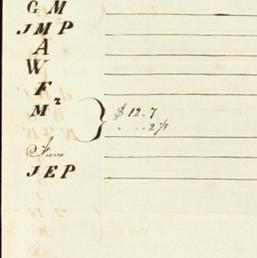 G M
J M P
A
W
F
M² } $ 12.7
" .. 2⅞
Fierro
J E P